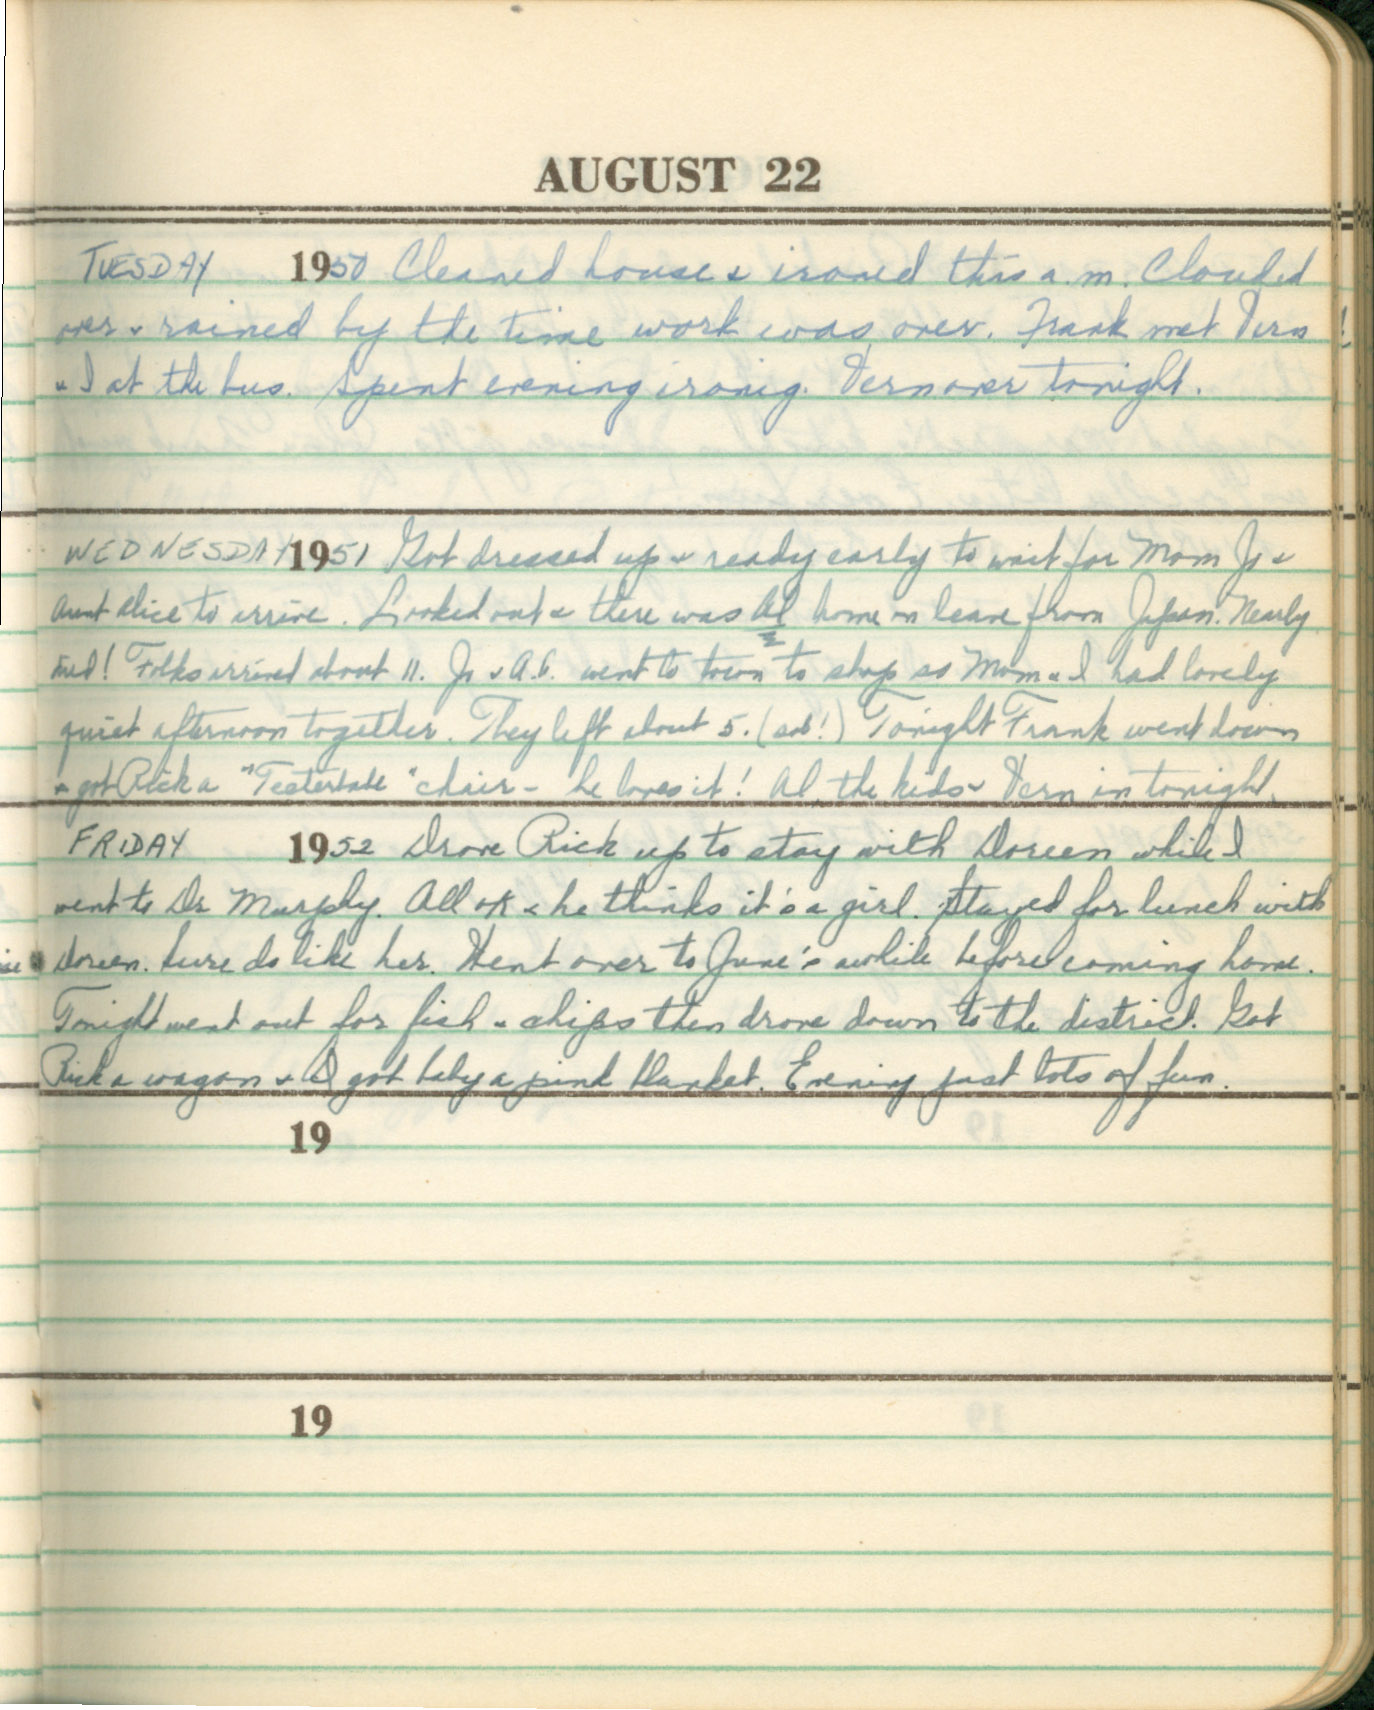 AUGUST 22
TUESDAY 1950 Cleaned house & ironed this a.m. Clouded
over & rained by the time work was over. Frank met Vern
& I at the bus. Spent evening ironig. Vern over tonight.
WEDNESDAY 1951 Got dressed up & ready early to wait for Mom Jo &
Aunt Alice to arrive. Looked out & there was Al home on leave from Japan. Nearly
died! Folks arrived about 11. Jo & A.A. went to town to shop so Mom & I had lovely
quiet afternoon together. They left about 5. (sob!) Tonight Frank went down
& got Rick a "Teeterbabe" chair - he loves it! Al, the kids & Vern in tonight.
FRIDAY 1952 Drove Rick up to stay with Doreen while I
went to Dr Murphy. All ok & he thinks it's a girl. Stayed for lunch with
Doreen. Sure do like her. Went over to June's awhile before coming home.
Tonight went out for fish & chips then drove down to the district. Got
Rick a wagon & I got baby a pink blanket. Evening just lots of fun.
19
19